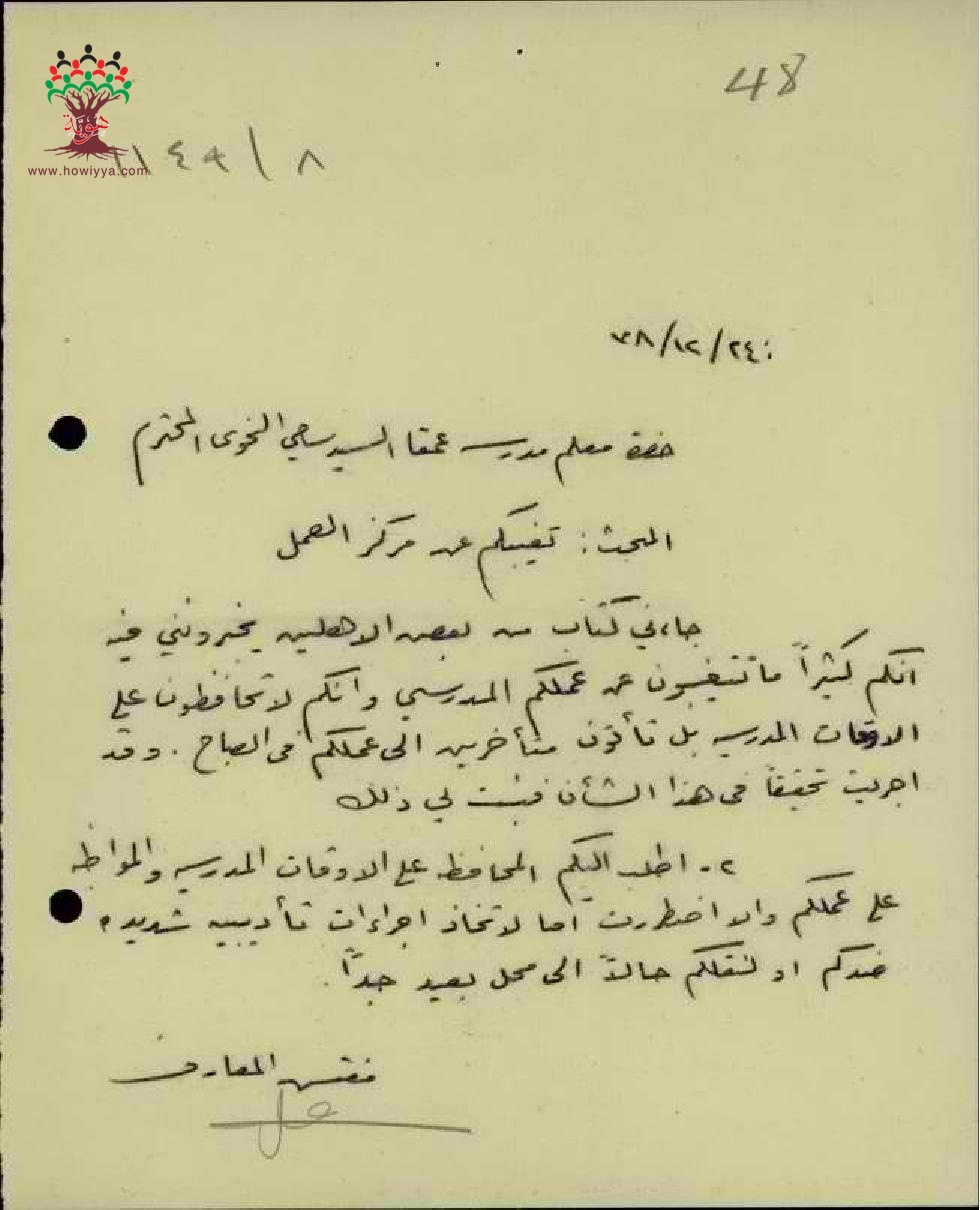 48
هوية
www.howiyya.com
٨ / ١١٤٩
٢٤/١٢/٣٨
حضرة معلم مدرسة عمقا السيد سامي النحوي المحترم
المبحث: تغيبكم عن مركز العمل
جاءني كتاب من بعض الاهلين يخبرونني فيه
انكم كثيراً ما تتغيبون عن عملكم المدرسي وانكم لا تحافظون على
الاوقات المدرسية بل تأتون متأخرين الى عملكم في الصباح . وقد
اجريت تحقيقاً في هذا الشأن فثبت لي ذلك
٢- اطلب اليكم المحافظة على الاوقات المدرسية والمواظبة
على عملكم والا اضطررت اما لاتخاذ اجراءات تأديبية شديدة
ضدكم او لنقلكم حالاً الى محل بعيد جداً .
مفتش المعارف